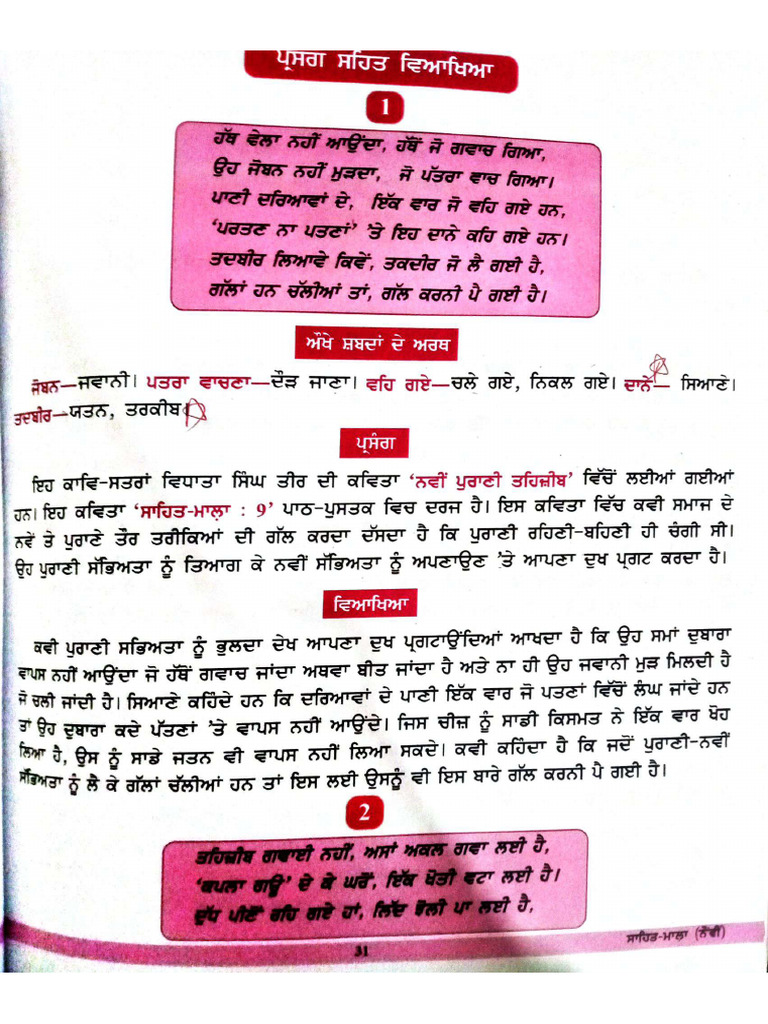 ਪ੍ਰਸੰਗ ਸਹਿਤ ਵਿਆਖਿਆ
1
ਹੱਥ ਵੇਲਾ ਨਹੀਂ ਆਉਂਦਾ, ਹੱਥੋਂ ਜੋ ਗਵਾਚ ਗਿਆ,
ਉਹ ਜੋਬਨ ਨਹੀਂ ਮੁੜਦਾ, ਜੋ ਪੱਤਰਾ ਵਾਚ ਗਿਆ।
ਪਾਣੀ ਦਰਿਆਵਾਂ ਦੇ, ਇੱਕ ਵਾਰ ਜੋ ਵਹਿ ਗਏ ਹਨ,
'ਪਰਤਣ ਨਾ ਪਤਣਾਂ' 'ਤੇ ਇਹ ਦਾਨੇ ਕਹਿ ਗਏ ਹਨ।
ਤਦਬੀਰ ਲਿਆਵੇ ਕਿਵੇਂ, ਤਕਦੀਰ ਜੋ ਲੈ ਗਈ ਹੈ,
ਗੱਲਾਂ ਹਨ ਚੱਲੀਆਂ ਤਾਂ, ਗੱਲ ਕਰਨੀ ਪੈ ਗਈ ਹੈ।
ਔਖੇ ਸ਼ਬਦਾਂ ਦੇ ਅਰਥ
ਜੋਬਨ—ਜਵਾਨੀ। ਪਤਰਾ ਵਾਚਣਾ—ਦੌੜ ਜਾਣਾ। ਵਹਿ ਗਏ—ਚਲੇ ਗਏ, ਨਿਕਲ ਗਏ। ਦਾਨੇ— ਸਿਆਣੇ।
ਤਦਬੀਰ—ਯਤਨ, ਤਰਕੀਬ।
ਪ੍ਰਸੰਗ
ਇਹ ਕਾਵਿ-ਸਤਰਾਂ ਵਿਧਾਤਾ ਸਿੰਘ ਤੀਰ ਦੀ ਕਵਿਤਾ 'ਨਵੀਂ ਪੁਰਾਣੀ ਤਹਿਜ਼ੀਬ' ਵਿੱਚੋਂ ਲਈਆਂ ਗਈਆਂ
ਹਨ। ਇਹ ਕਵਿਤਾ 'ਸਾਹਿਤ-ਮਾਲਾ : 9' ਪਾਠ-ਪੁਸਤਕ ਵਿਚ ਦਰਜ ਹੈ। ਇਸ ਕਵਿਤਾ ਵਿੱਚ ਕਵੀ ਸਮਾਜ ਦੇ
ਨਵੇਂ ਤੇ ਪੁਰਾਣੇ ਤੌਰ ਤਰੀਕਿਆਂ ਦੀ ਗੱਲ ਕਰਦਾ ਦੱਸਦਾ ਹੈ ਕਿ ਪੁਰਾਣੀ ਰਹਿਣੀ-ਬਹਿਣੀ ਹੀ ਚੰਗੀ ਸੀ।
ਉਹ ਪੁਰਾਣੀ ਸੱਭਿਅਤਾ ਨੂੰ ਤਿਆਗ ਕੇ ਨਵੀਂ ਸੱਭਿਅਤਾ ਨੂੰ ਅਪਣਾਉਣ 'ਤੇ ਆਪਣਾ ਦੁਖ ਪ੍ਰਗਟ ਕਰਦਾ ਹੈ।
ਵਿਆਖਿਆ
ਕਵੀ ਪੁਰਾਣੀ ਸਭਿਅਤਾ ਨੂੰ ਭੁਲਦਾ ਦੇਖ ਆਪਣਾ ਦੁਖ ਪ੍ਰਗਟਾਉਂਦਿਆਂ ਆਖਦਾ ਹੈ ਕਿ ਉਹ ਸਮਾਂ ਦੁਬਾਰਾ
ਵਾਪਸ ਨਹੀਂ ਆਉਂਦਾ ਜੋ ਹੱਥੋਂ ਗਵਾਚ ਜਾਂਦਾ ਅਥਵਾ ਬੀਤ ਜਾਂਦਾ ਹੈ ਅਤੇ ਨਾ ਹੀ ਉਹ ਜਵਾਨੀ ਮੁੜ ਮਿਲਦੀ ਹੈ
ਜੋ ਚਲੀ ਜਾਂਦੀ ਹੈ। ਸਿਆਣੇ ਕਹਿੰਦੇ ਹਨ ਕਿ ਦਰਿਆਵਾਂ ਦੇ ਪਾਣੀ ਇੱਕ ਵਾਰ ਜੋ ਪਤਣਾਂ ਵਿੱਚੋਂ ਲੰਘ ਜਾਂਦੇ ਹਨ
ਤਾਂ ਉਹ ਦੁਬਾਰਾ ਕਦੇ ਪੱਤਣਾਂ 'ਤੇ ਵਾਪਸ ਨਹੀਂ ਆਉਂਦੇ। ਜਿਸ ਚੀਜ਼ ਨੂੰ ਸਾਡੀ ਕਿਸਮਤ ਨੇ ਇੱਕ ਵਾਰ ਖੋਹ
ਲਿਆ ਹੈ, ਉਸ ਨੂੰ ਸਾਡੇ ਜਤਨ ਵੀ ਵਾਪਸ ਨਹੀਂ ਲਿਆ ਸਕਦੇ। ਕਵੀ ਕਹਿੰਦਾ ਹੈ ਕਿ ਜਦੋਂ ਪੁਰਾਣੀ-ਨਵੀਂ
ਸੱਭਿਅਤਾ ਨੂੰ ਲੈ ਕੇ ਗੱਲਾਂ ਚੱਲੀਆਂ ਹਨ ਤਾਂ ਇਸ ਲਈ ਉਸਨੂੰ ਵੀ ਇਸ ਬਾਰੇ ਗੱਲ ਕਰਨੀ ਪੈ ਗਈ ਹੈ।
2
ਤਹਿਜ਼ੀਬ ਗਵਾਈ ਨਹੀਂ, ਅਸਾਂ ਅਕਲ ਗਵਾ ਲਈ ਹੈ,
'ਕਪਲਾ ਗਊ' ਦੇ ਕੇ ਘਰੋਂ, ਇੱਕ ਖੋਤੀ ਵਟਾ ਲਈ ਹੈ।
ਦੁੱਧ ਪੀਣੋਂ ਰਹਿ ਗਏ ਹਾਂ, ਲਿੱਦ ਝੋਲੀ ਪਾ ਲਈ ਹੈ,
31
ਸਾਹਿਤ-ਮਾਲਾ (ਨੌਵੀਂ)